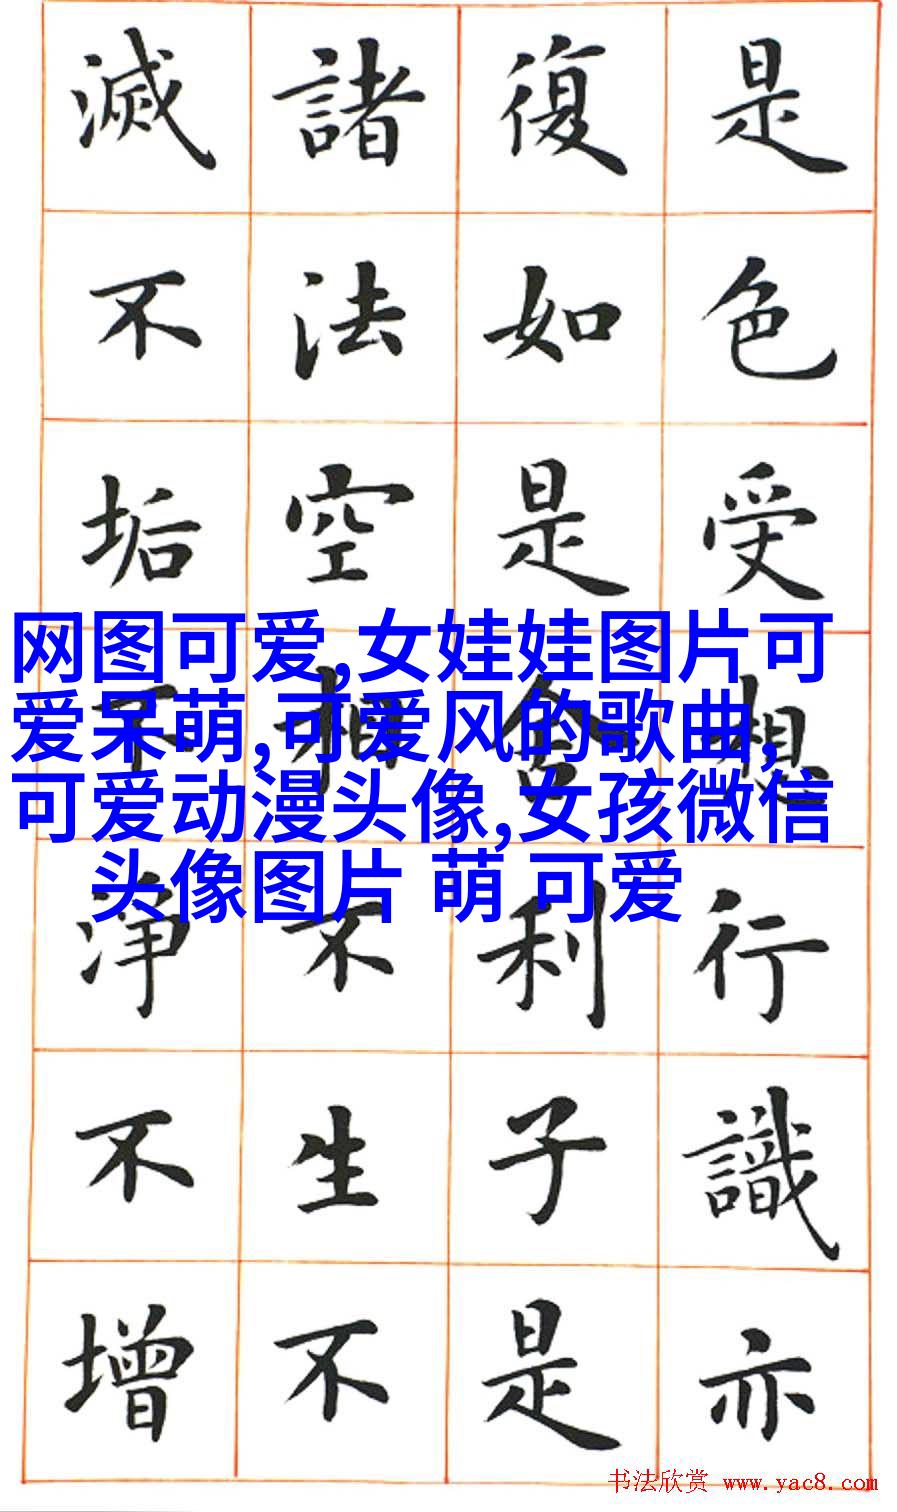 是色受想行識亦
復如是舍利子是
諸法空相不生不
滅不垢不淨不增
网图可爱,女娃娃图片可
爱呆萌,可爱风的歌曲,
可爱动漫头像,女孩微信
头像图片 萌 可爱
书法欣赏 www.yac8.com